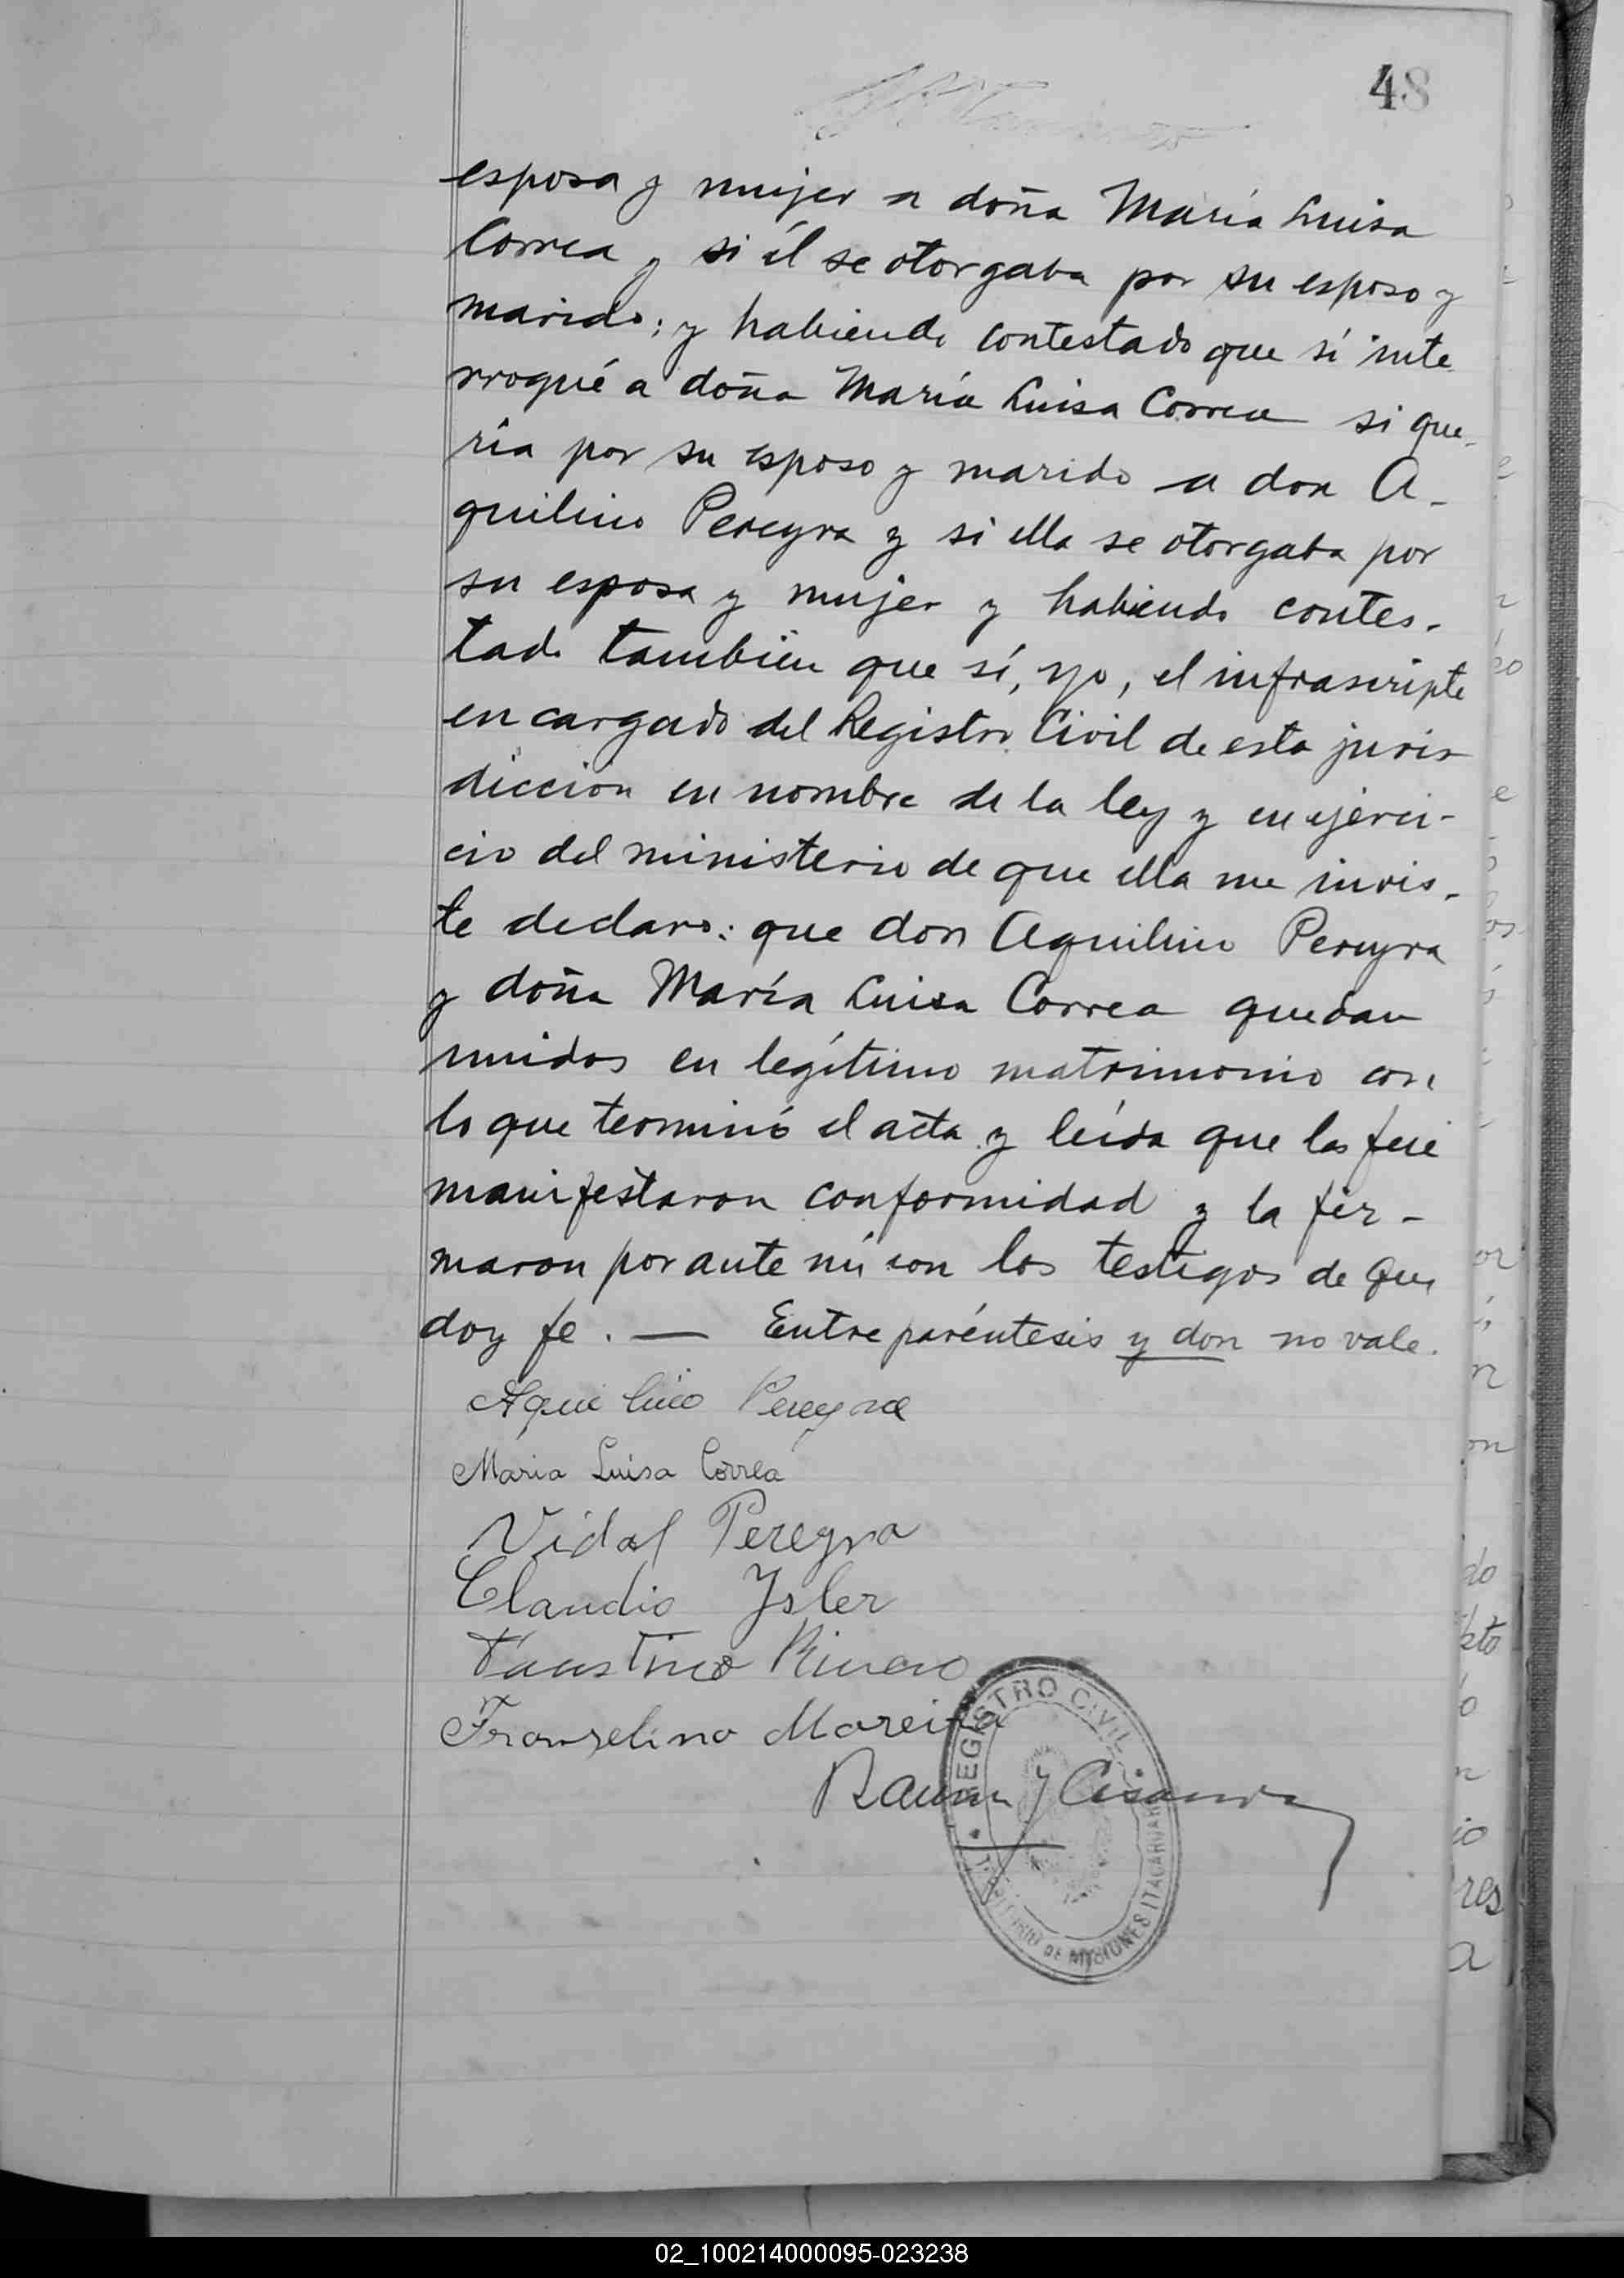 48
esposa y mujer a doña María Luisa
Correa y si él se otorgaba por su esposo y
marido; y habiendo contestado que sí inte
rrogué a doña María Luisa Correa si que-
ría por su esposo y marido a don A-
quilino Pereyra y si ella se otorgaba por
su esposa y mujer y habiendo contes-
tado también que sí, yo, el infrascripto
encargado del Registro Civil de esta juris
dicción en nombre de la ley y en ejerci-
cio del ministerio de que ella me invis-
te declaro: que don Aquilino Pereyra
y doña María Luisa Correa quedan
unidos en legítimo matrimonio con
lo que terminó el acta y leída que les fué
manifestaron conformidad y la fir-
maron por ante mí con los testigos de que
doy fe. — Entre paréntesis y don no vale.
Aquilino Pereyra
Maria Luisa Correa
Vidal Pereyra
Claudio Ysler
Faustino
Franzelino Moreira
REGISTRO CIVIL
Ramon J
TERRITORIO DE MISIONES ITACARUARE
02_100214000095-023238